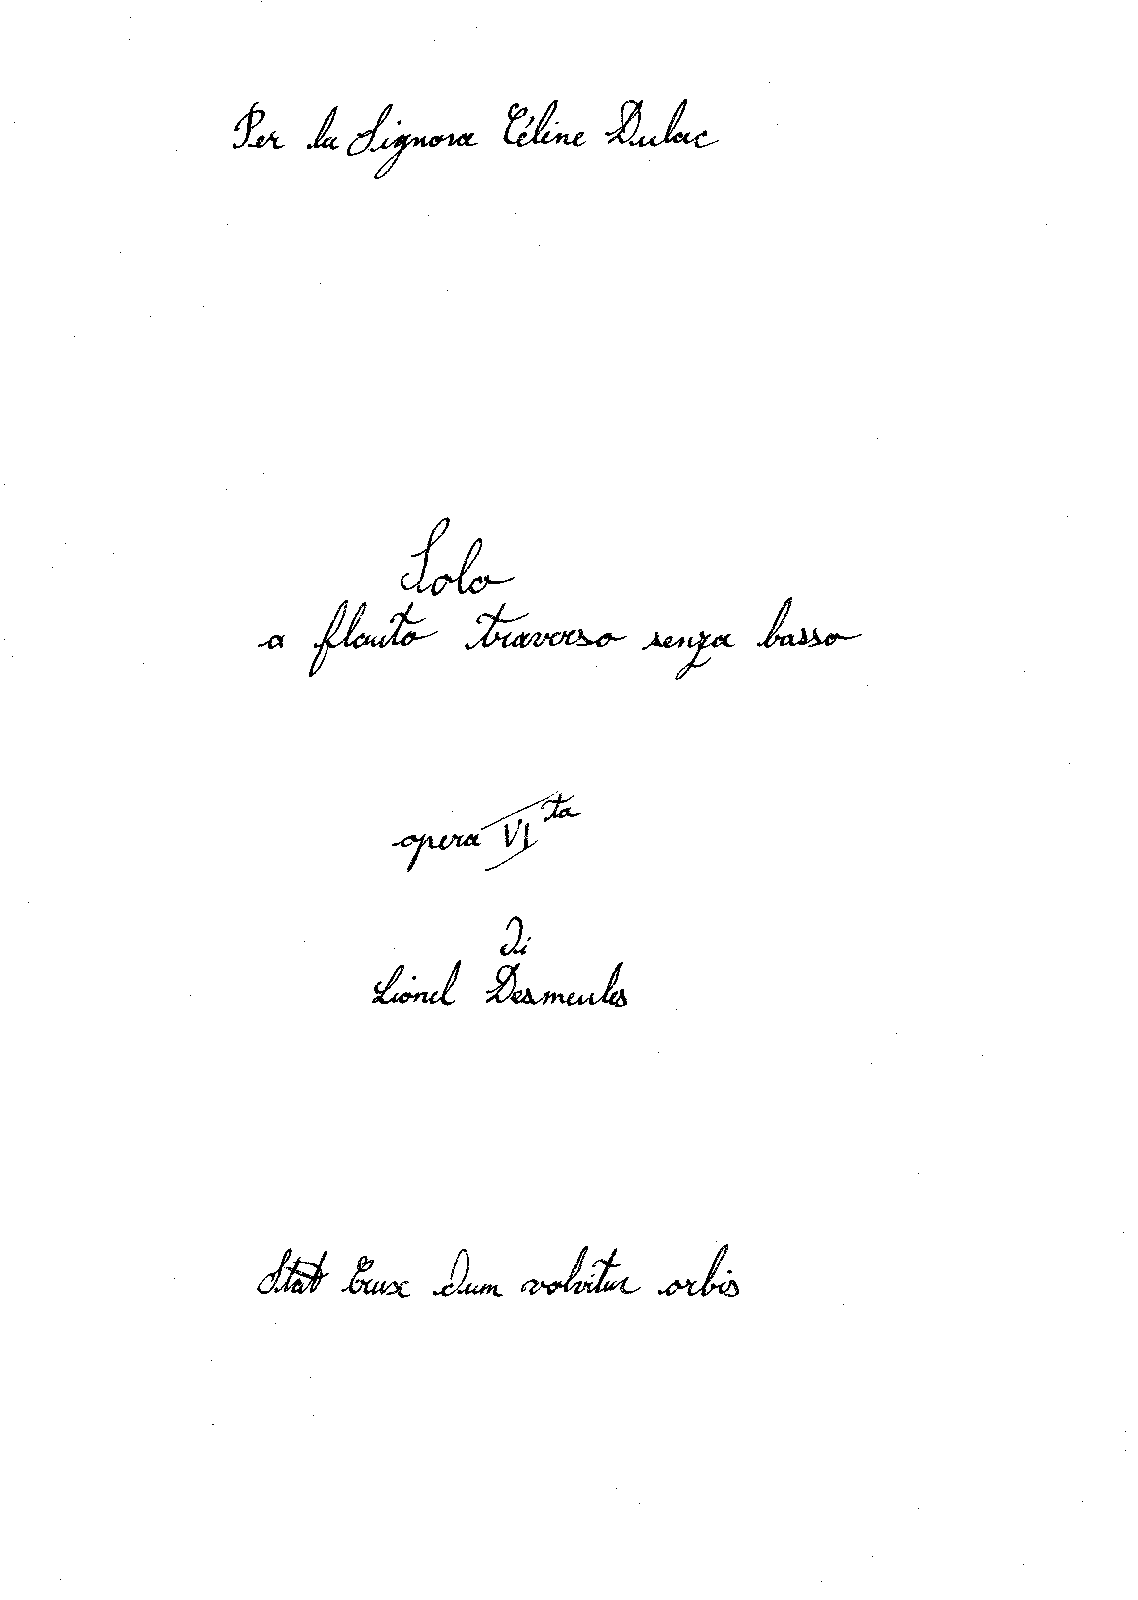 Per la Signora Céline Dulac
Solo
a flauto traverso senza basso
opera VI ta
Di
Lionel Desmeules
Stat Crux dum volvitur orbis